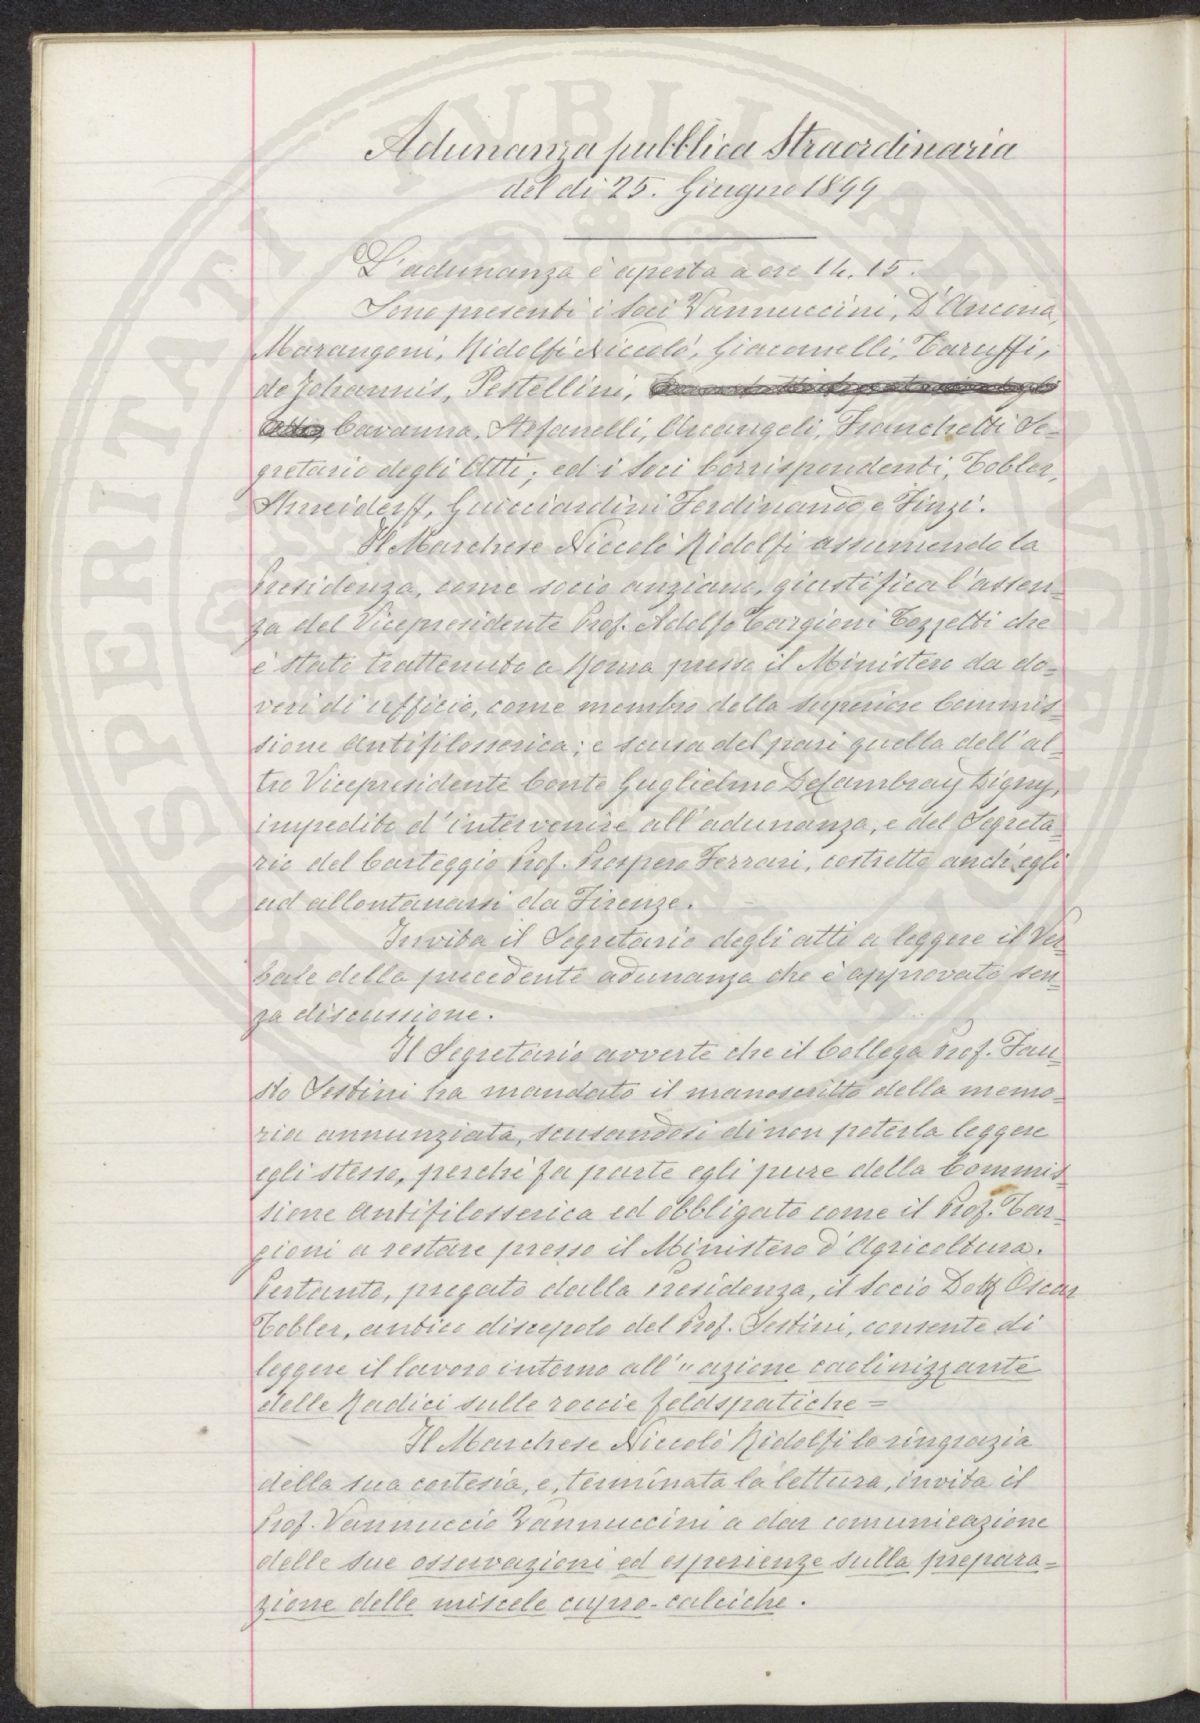 Adunanza pubblica Straordinaria
del dì 25. Giugno 1899
L'adunanza è aperta a ore 14.15.
Sono presenti i Soci Vannuccini, D'Ancona,
Marangoni, Ridolfi Niccolò, Giacomelli, Taruffi,
de Johannis, Pestellini,
Cavanna, Stefanelli, Arcangeli, Franchetti Se=
gretario degli Atti; ed i Soci Corrispondenti, Tobler,
Schneiderff, Guicciardini Ferdinando e Finzi.
Il Marchese Niccolò Ridolfi assumendo la
Presidenza, come socio anziano, giustifica l'assen=
za del Vicepresidente Prof. Adolfo Targioni Tozzetti che
è stato trattenuto a Roma presso il Ministero da do=
veri di ufficio, come membro della superiore Commis=
sione antifilosserica; e scusa del pari quella dell'al=
tro Vicepresidente Conte Guglielmo DeCambray Digny,
impedito d'intervenire all'adunanza, e del Segreta=
rio del Carteggio Prof. Prospero Ferrari, costretto anch'egli
ad allontanarsi da Firenze.
Invita il Segretario degli atti a leggere il Ver=
bale della precedente adunanza che è approvato sen=
za discussione.
Il Segretario avverte che il Collega Prof. Fau=
sto Sestini ha mandato il manoscritto della memo=
ria annunziata, scusandosi di non poterla leggere
egli stesso, perchè fa parte egli pure della Commis=
sione antifilosserica ed obbligato come il Prof. Tar=
gioni a restare presso il Ministero d'Agricoltura.
Pertanto, pregato dalla Presidenza, il Socio Dott Oscar
Tobler, antico discepolo del Prof. Sestini, consente di
leggere il lavoro intorno all'"azione caolinizzante
delle Radici sulle roccie feldspatiche =
Il Marchese Niccolò Ridolfi lo ringrazia
della sua cortesia, e, terminata la lettura, invita il
Prof. Vannuccio Vannuccini a dar comunicazione
delle sue osservazioni ed esperienze sulla prepara=
zione delle miscele cupro-calciche.